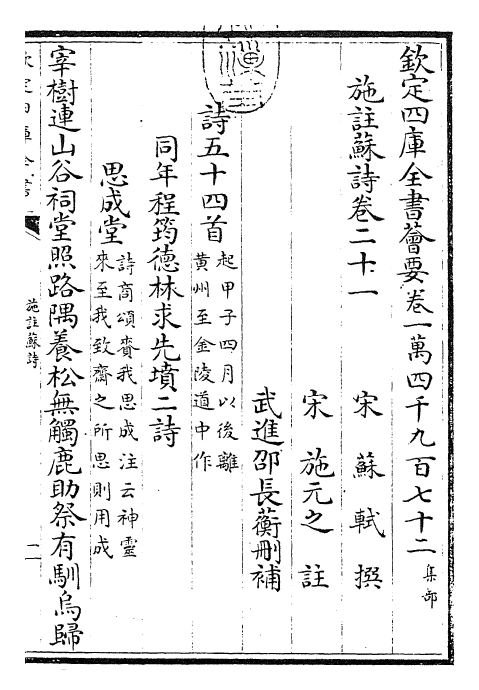 欽定四庫全書薈要卷一萬四千九百七十二 集部
施註蘇詩卷二十一
宋 蘇軾 撰
宋 施元之 註
武進邵長蘅刪補
詩五十四首 起甲子四月以後離
黃州至金陵道中作
同年程筠德林求先墳二詩
思成堂 詩商頌賚我思成注云神靈
來至我致齋之所思則用成
宰樹連山谷祠堂照路隅養松無觸鹿助祭有馴烏歸
欽定四庫全書
施註蘇詩
一